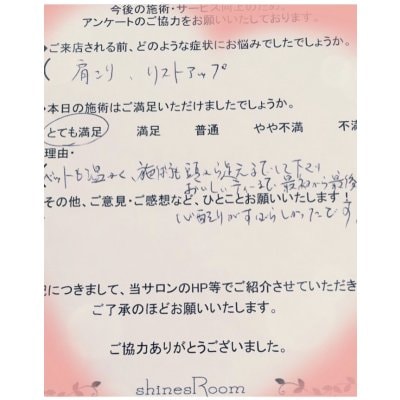 今後の施術・サービス向上のため、
アンケートのご協力をお願いいたしております。
ご来店される前、どのような症状にお悩みでしたでしょうか。
( 肩こり、リストアップ
本日の施術はご満足いただけましたでしょうか。
とても満足 満足 普通 やや不満 不満
理由・
ベットも温かく、施術も頭から足まで して下さり
おいしいティーまで、最初から最後
その他、ご意見・ご感想など、ひとことお願いいたします
心配りがすばらしかったです。
につきまして、当サロンのHP等でご紹介させていただき
ご了承のほどお願いいたします。
ご協力ありがとうございました。
shinesRoom